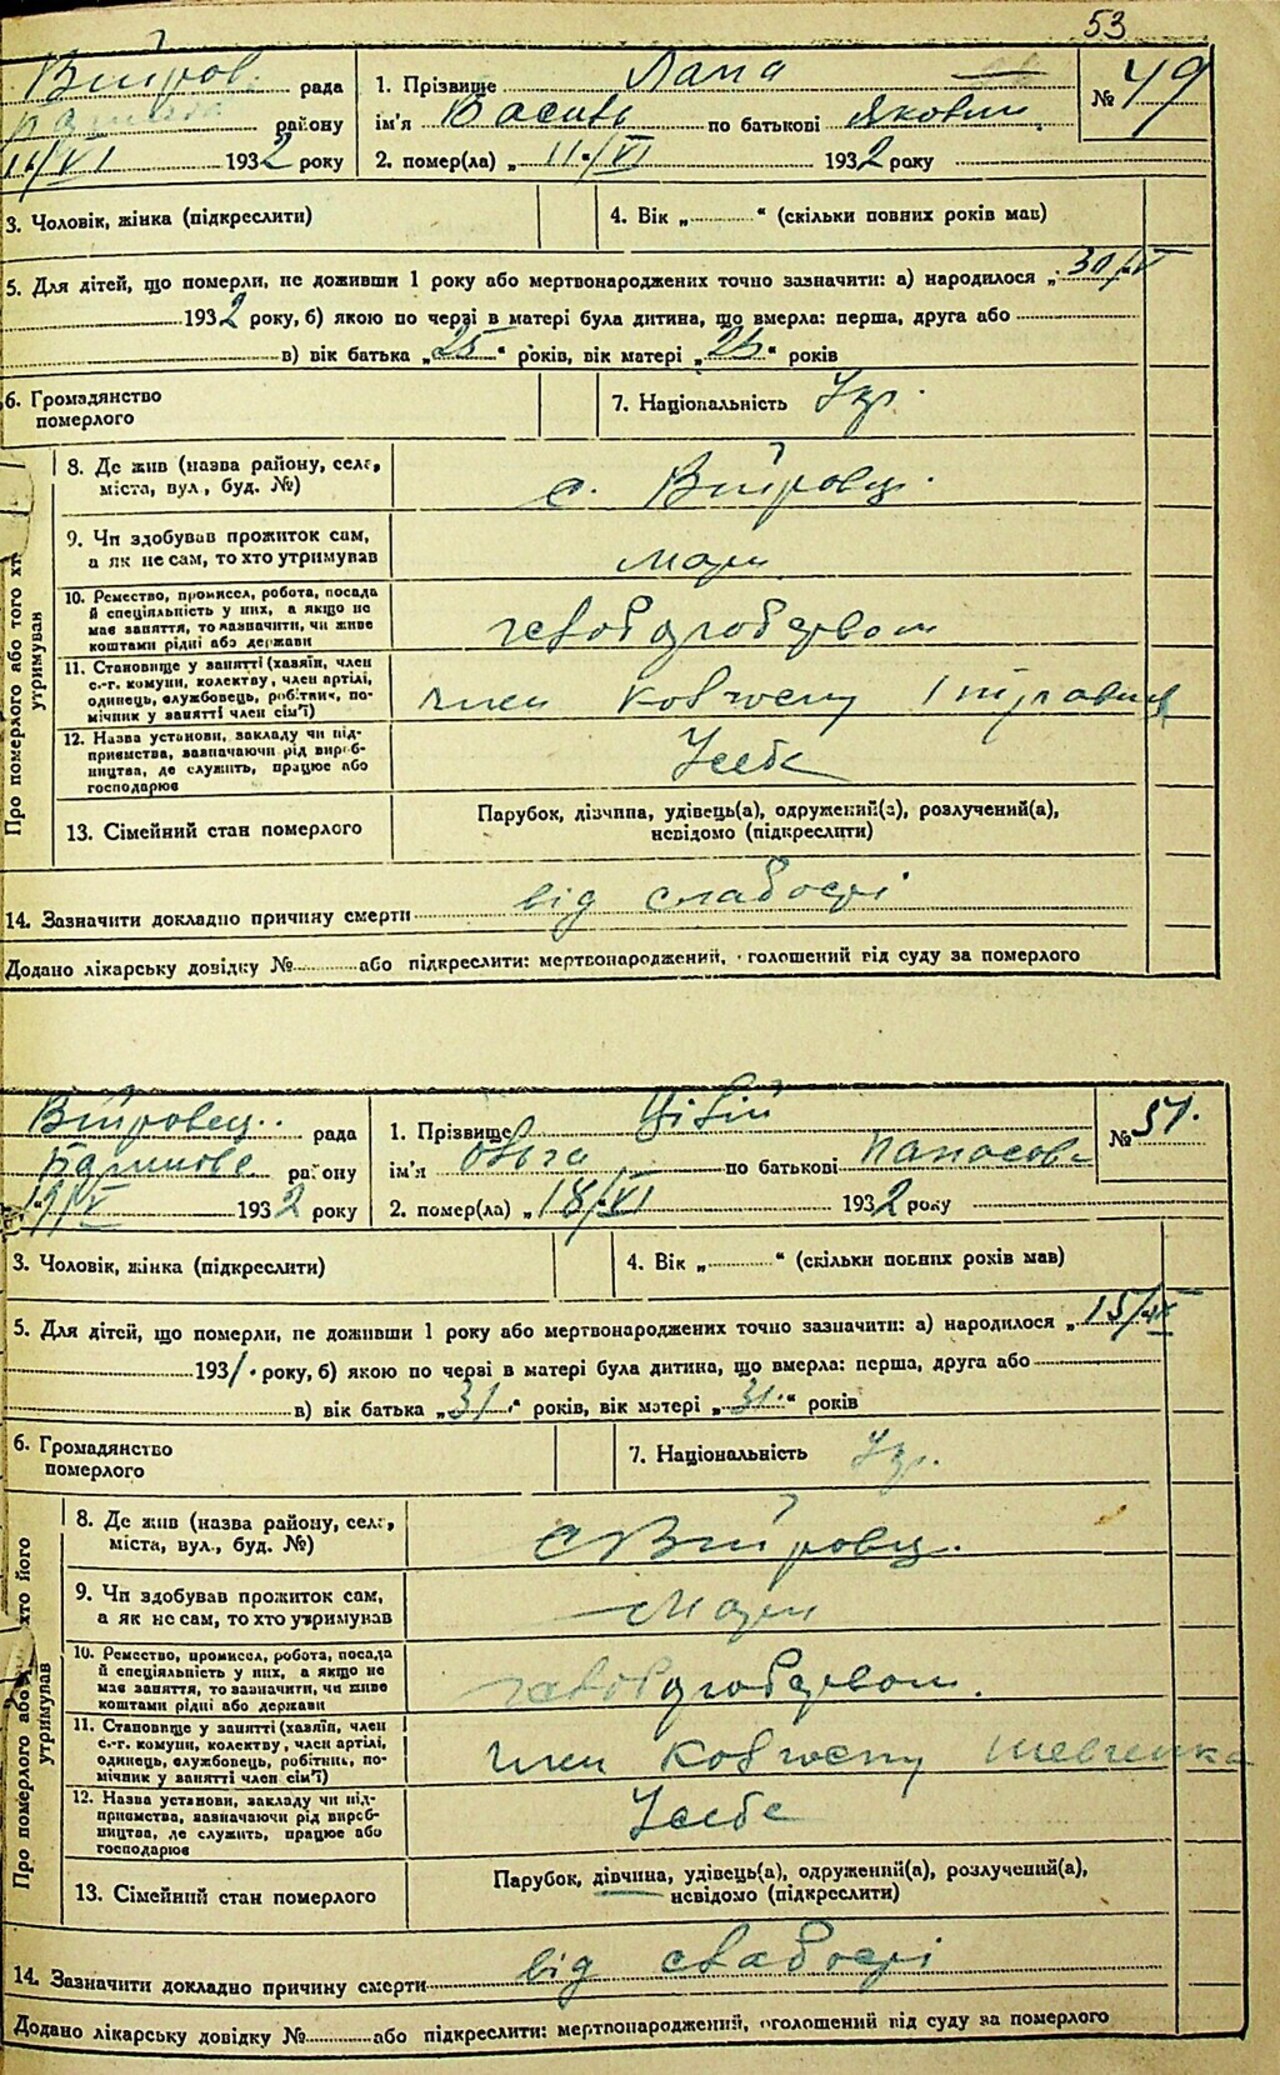 53
рада
1. Прізвище Лапа
№ 49
району
ім'я Василь по батькові Якович
11/VI 1932 року
2. помер(ла) „ 11 “/VI 1932 року
3. Чоловік, жінка (підкреслити)
4. Вік „ “ (скільки повних років мав)
5. Для дітей, що померли, не доживши 1 року або мертвонароджених точно зазначити: а) народилося „ 30/V
1932 року, б) якою по черзі в матері була дитина, що вмерла: перша, друга або
в) вік батька „25“ років, вік матері „26“ років
6. Громадянство
померлого
7. Національність Укр.
8. Де жив (назва району, села,
міста, вул., буд. №)
с.
9. Чи здобував прожиток сам,
а як не сам, то хто утримував
мати
10. Ремество, промисел, робота, посада
й спеціяльність у них, а якщо не
має заняття, то зазначити, чи живе
коштами рідні або держави
11. Становище у занятті (хазяїн, член
с.-г. комуни, колективу, член артілі,
одинець, службовець, робітник, по-
мічник у занятті член сім'ї)
член колгоспу
12. Назва установи, закладу чи під-
приємства, зазначаючи рід вироб-
ництва, де служить, працює або
господарює
У себе
Про померлого або того хто
утримував
13. Сімейний стан померлого
Парубок, дівчина, удівець(а), одружений(а), розлучений(а),
невідомо (підкреслити)
14. Зазначити докладно причину смерти від слабості
Додано лікарську довідку № або підкреслити: мертвонароджений, оголошений від суду за померлого
рада
1. Прізвище Цівій
№ 51.
району
ім'я Ольга по батькові Панасовн
1932 року
2. помер(ла) „ 18/VI 1932 року
3. Чоловік, жінка (підкреслити)
4. Вік „ “ (скільки повних років мав)
5. Для дітей, що померли, не доживши 1 року або мертвонароджених точно зазначити: а) народилося „ 15/
1931. року, б) якою по черзі в матері була дитина, що вмерла: перша, друга або
в) вік батька „31“ років, вік матері „31“ років
6. Громадянство
померлого
7. Національність Укр.
8. Де жив (назва району, села,
міста, вул., буд. №)
с
9. Чи здобував прожиток сам,
а як не сам, то хто утримував
мати
10. Ремество, промисел, робота, посада
й спеціяльність у них, а якщо не
має заняття, то зазначити, чи живе
коштами рідні або держави
11. Становище у занятті (хазяїн, член
с.-г. комуни, колективу, член артілі,
одинець, службовець, робітник, по-
мічник у занятті член сім'ї)
член колгоспу Шевченка
12. Назва установи, закладу чи під-
приємства, зазначаючи рід вироб-
ництва, де служить, працює або
господарює
У себе
Про померлого або хто його
утримував
13. Сімейний стан померлого
Парубок, дівчина, удівець(а), одружений(а), розлучений(а),
невідомо (підкреслити)
14. Зазначити докладно причину смерти від слабості
Додано лікарську довідку № або підкреслити: мертвонароджений, оголошений від суду за померлого